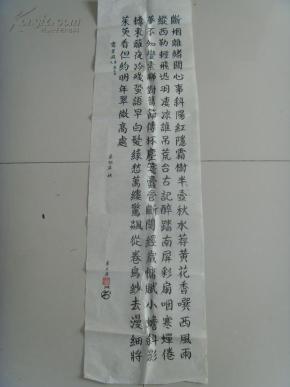 斷烟離緒關心事斜陽紅隱霜樹半壺秋水荐黄花香噀西風雨
縱玉勒輕飛迅羽凄凉誰吊荒台古記醉踏南屏彩扇咽寒蟬倦
夢不知蠻素聊對舊節傳杯塵箋蠹管斷闋經歲慵賦小蟾斜影
轉東籬夜冷殘蛩語早白髮緣愁萬縷驚飆從卷烏紗去漫細將
茱萸看但約明年翠微高處